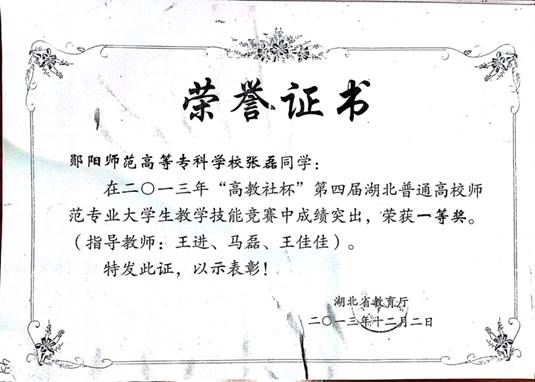 荣誉证书
郧阳师范高等专科学校张磊同学：
在二〇一三年“高教社杯”第四届湖北普通高校师
范专业大学生教学技能竞赛中成绩突出，荣获一等奖。
（指导教师：王进、马磊、王佳佳）。
特发此证，以示表彰！
湖北省教育厅
二〇一三年十二月二日